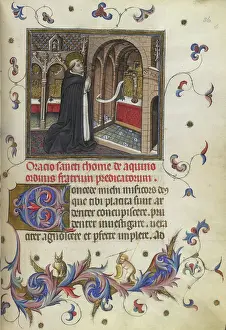 Oracio sancti thome de aquino
ordinis fratrum predicatorum.
Concede michi misericors de
que tibi placita sunt ar
denter concupiscere, pru
denter inuestigare, uera
citer agnoscere et perfecte implere. Ad